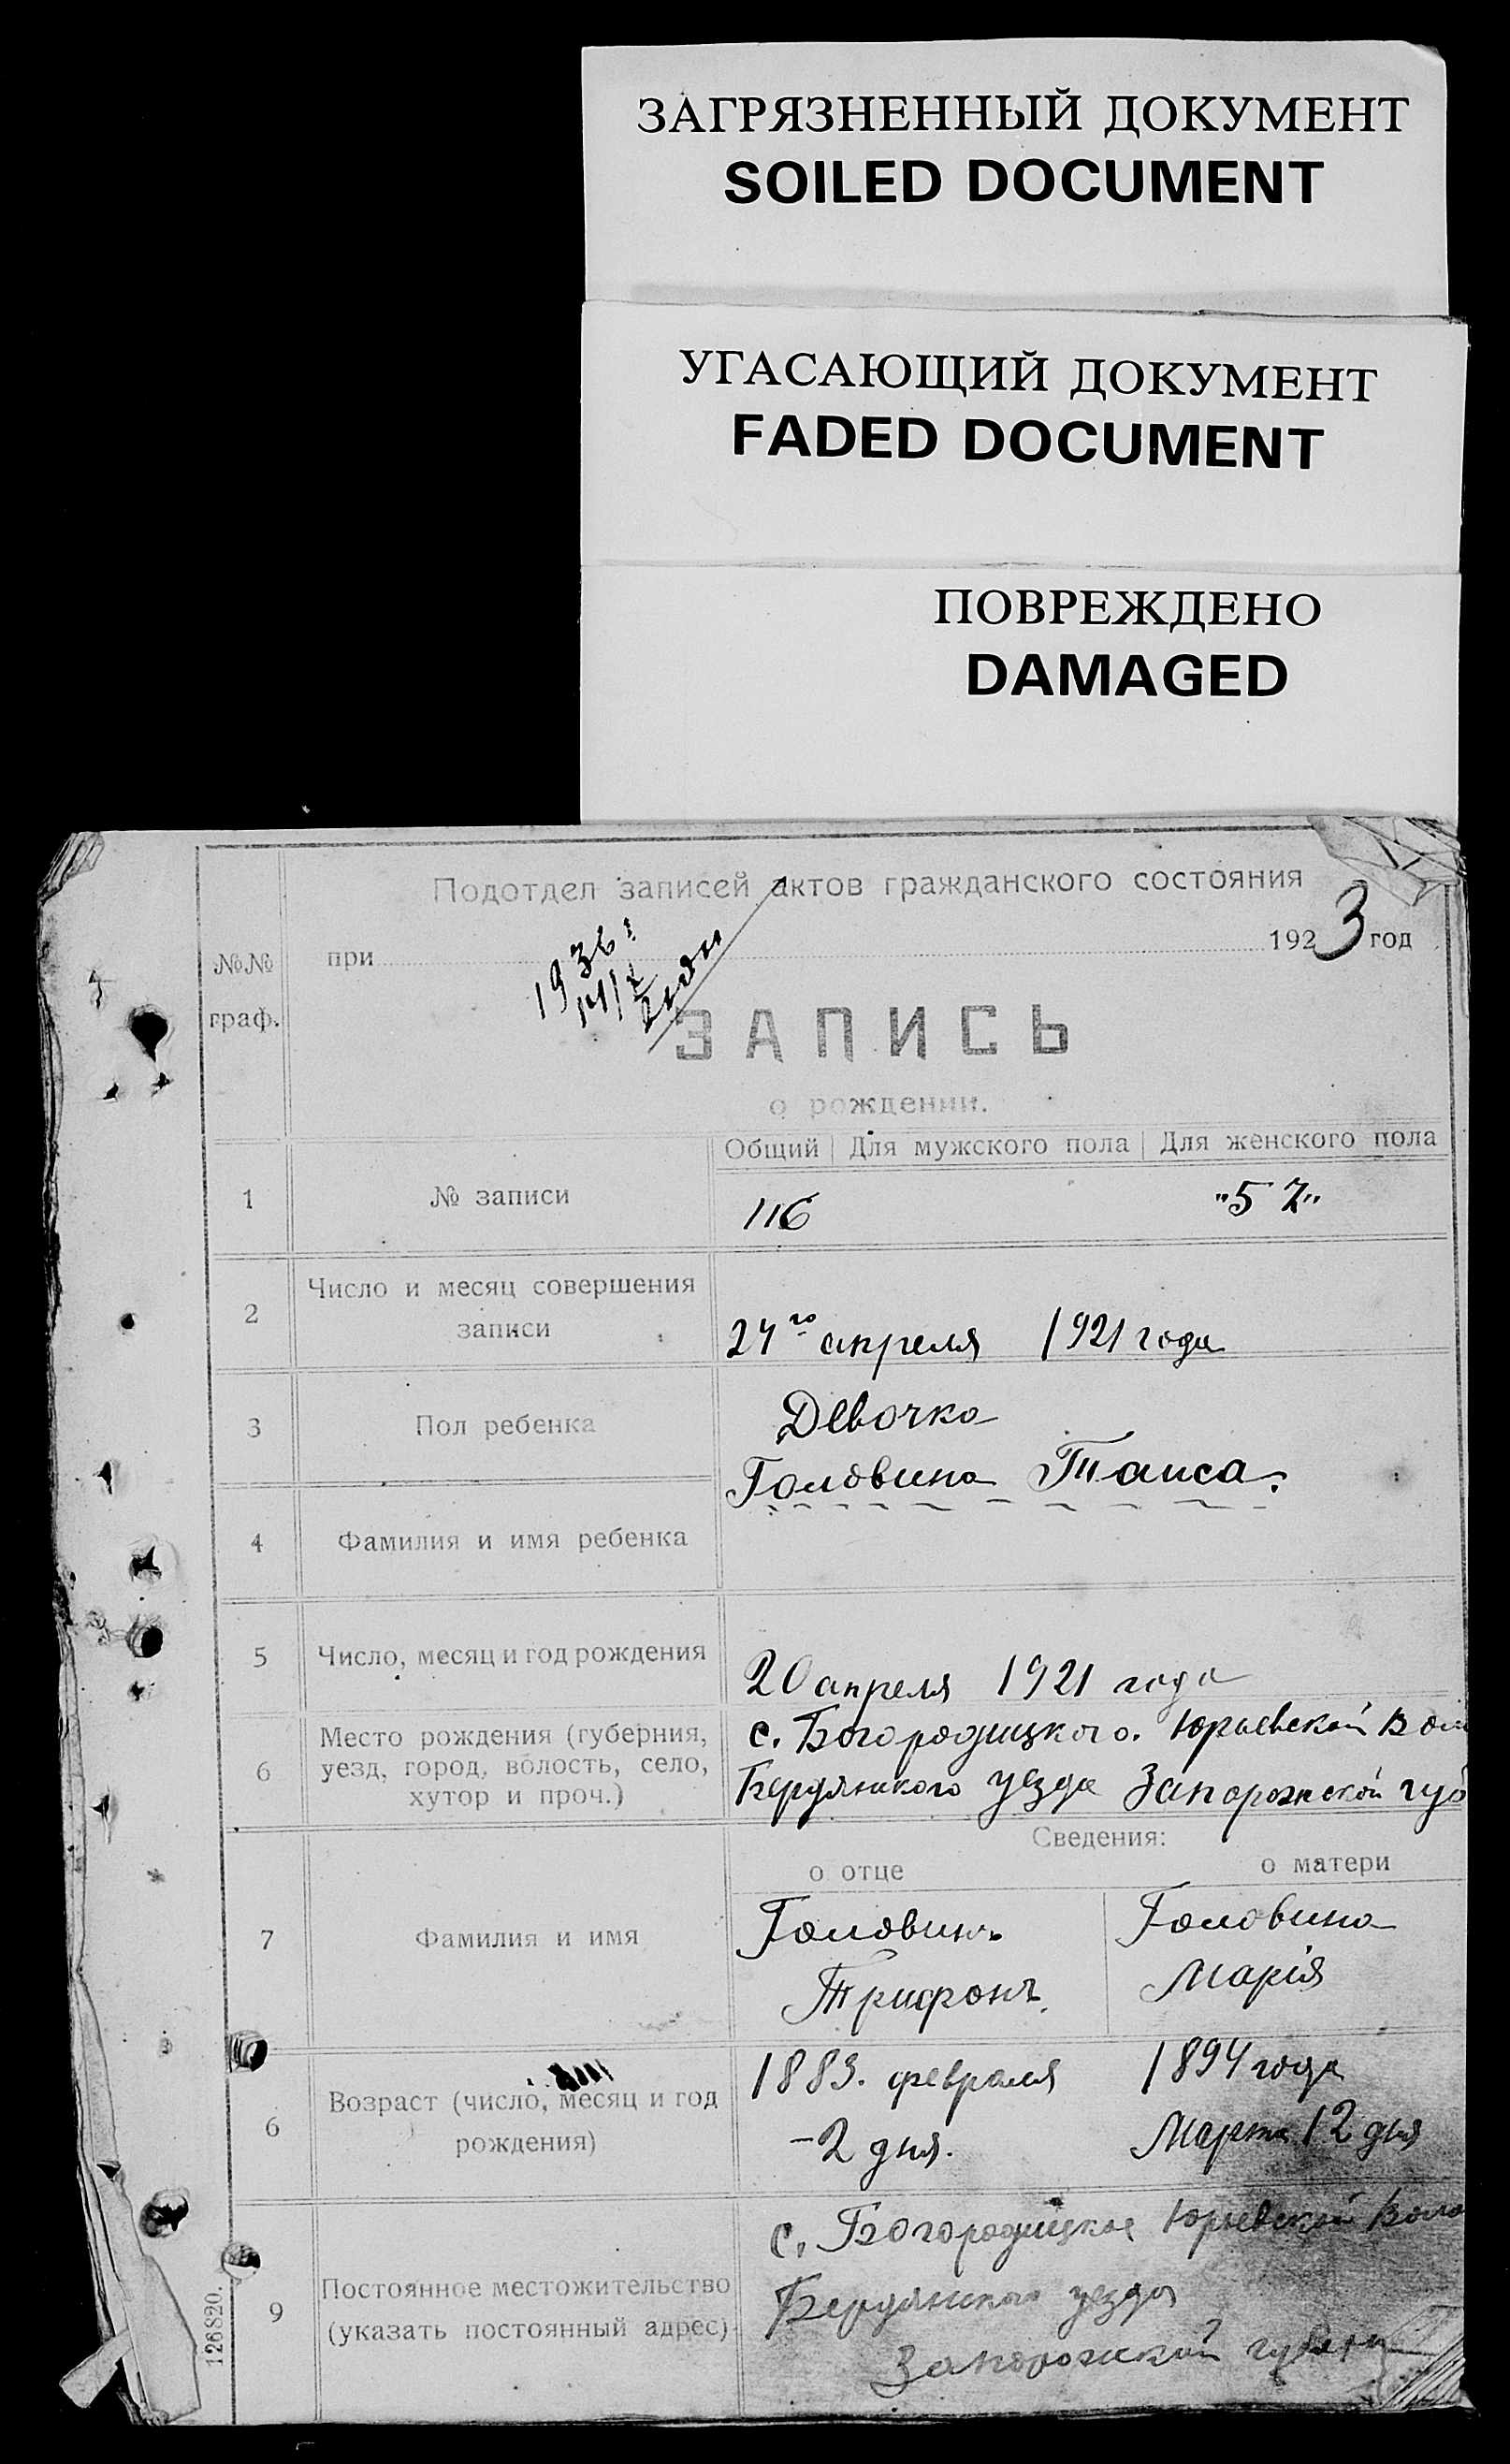 ЗАГРЯЗНЕННЫЙ ДОКУМЕНТ
SOILED DOCUMENT
УГАСАЮЩИЙ ДОКУМЕНТ
FADED DOCUMENT
ПОВРЕЖДЕНО
DAMAGED
Подотдел записей актов гражданского состояния
№№ граф.
при 1923 год
1936
ЗАПИСЬ
о рождении.
Общий Для мужского пола Для женского пола
1 № записи 116 "57"
2 Число и месяц совершения
записи
24го апреля 1921 года
3 Пол ребенка Девочка
Головина Таиса.
4 Фамилия и имя ребенка
5 Число, месяц и год рождения 20 апреля 1921 года
6 Место рождения (губерния,
уезд, город, волость, село,
хутор и проч.)
с. Богородицкого. Юрьевской Вол
Бердянского уезда Запорожской губ
Сведения:
о отце о матери
7 Фамилия и имя
Головинъ Головина
Трифонъ. Марія
6 Возраст (число, месяц и год
рождения)
1883. февраля 1894 года
-2 дня. Марта 12 дня
9 Постоянное местожительство
(указать постоянный адрес)
с. Богородицкое Юрьевской Воло
Бердянского уезда
Запорожской
126820.